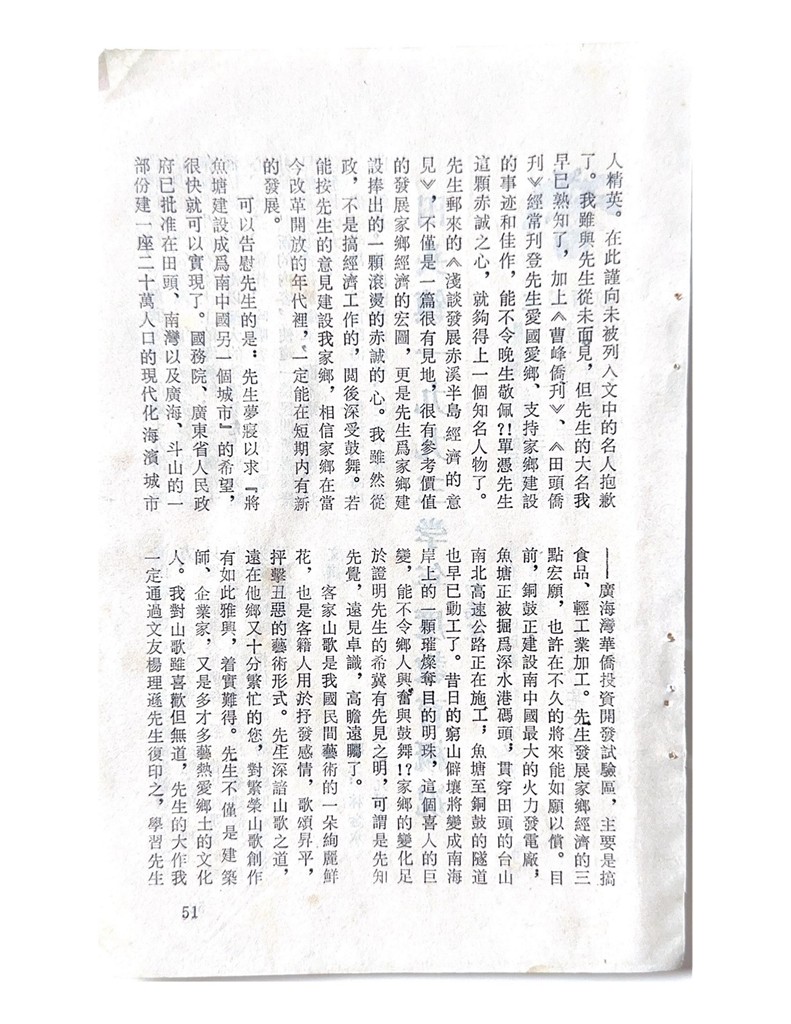 人精英。在此謹向未被列入文中的名人抱歉
了。我雖與先生從未面見，但先生的大名我
早已熟知了，加上《曹峰僑刊》、《田頭僑
刊》經常刊登先生愛國愛鄉、支持家鄉建設
的事迹和佳作，能不令晚生敬佩？！單憑先生
這顆赤誠之心，就夠得上一個知名人物了。
先生郵來的《淺談發展赤溪半島經濟的意
見》，不僅是一篇很有見地，很有參考價值
的發展家鄉經濟的宏圖，更是先生爲家鄉建
設捧出的一顆滾燙的赤誠的心。我雖然從
政，不是搞經濟工作的，閱後深受鼓舞。若
能按先生的意見建設我家鄉，相信家鄉在當
今改革開放的年代裡，一定能在短期内有新
的發展。
可以告慰先生的是：先生夢寢以求『將
魚塘建設成爲南中國另一個城市』的希望，
很快就可以實現了。國務院、廣東省人民政
府已批准在田頭、南灣以及廣海、斗山的一
部份建一座二十萬人口的現代化海濱城市
——廣海灣華僑投資開發試驗區，主要是搞
食品、輕工業加工。先生發展家鄉經濟的三
點宏願，也許在不久的將來能如願以償。目
前，銅鼓正建設南中國最大的火力發電廠，
魚塘正被掘爲深水港碼頭，貫穿田頭的台山
南北高速公路正在施工，魚塘至銅鼓的隧道
也早已動工了。昔日的窮山僻壤將變成南海
岸上的一顆璀燦奪目的明珠，這個喜人的巨
變，能不令鄉人興奮與鼓舞！？家鄉的變化足
於證明先生的希冀有先見之明，可謂是先知
先覺，遠見卓識，高瞻遠矚了。
客家山歌是我國民間藝術的一朵絢麗鮮
花，也是客籍人用於抒發感情，歌頌昇平，
抨擊丑惡的藝術形式。先生深諳山歌之道，
遠在他鄉又十分繁忙的您，對繁榮山歌創作
有如此雅興，着實難得。先生不僅是建築
師、企業家，又是多才多藝熱愛鄉土的文化
人。我對山歌雖喜歡但無道，先生的大作我
一定通過文友楊理遜先生復印之，學習先生
51